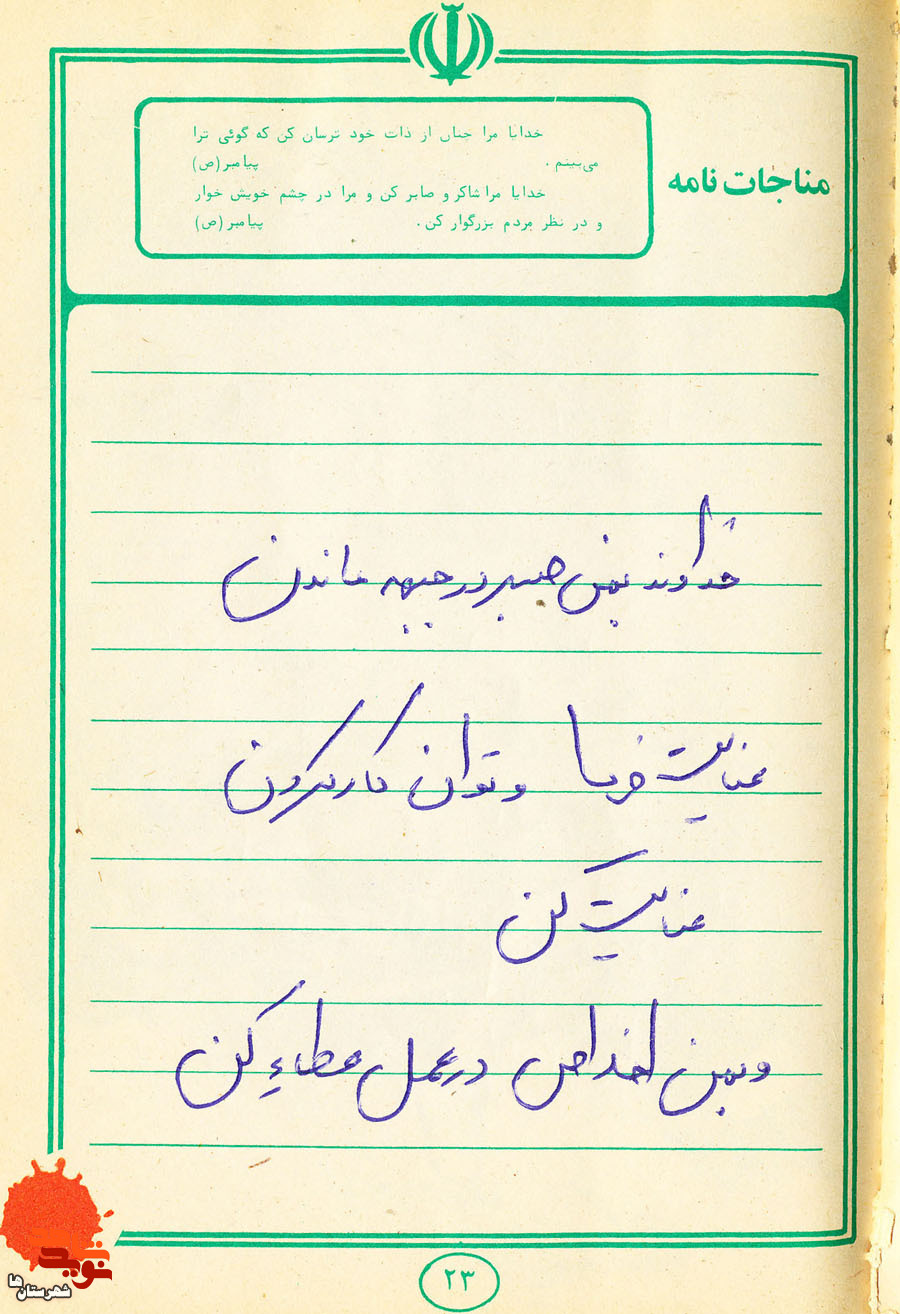 خدایا مرا چنان از ذات خود ترسان کن که گوئی ترا
می‌بینم. پیامبر(ص)
خدایا مرا شاکر و صابر کن و مرا در چشم خویش خوار
و در نظر مردم بزرگوار کن. پیامبر(ص)
مناجات نامه
خداوندا بمن صبر در جبهه ماندن
عنایت فرما و توان کار کردن
عنایت کن
و بمن اخلاص در عمل عطاء کن
نوید
شهرستان‌ها
۲۳